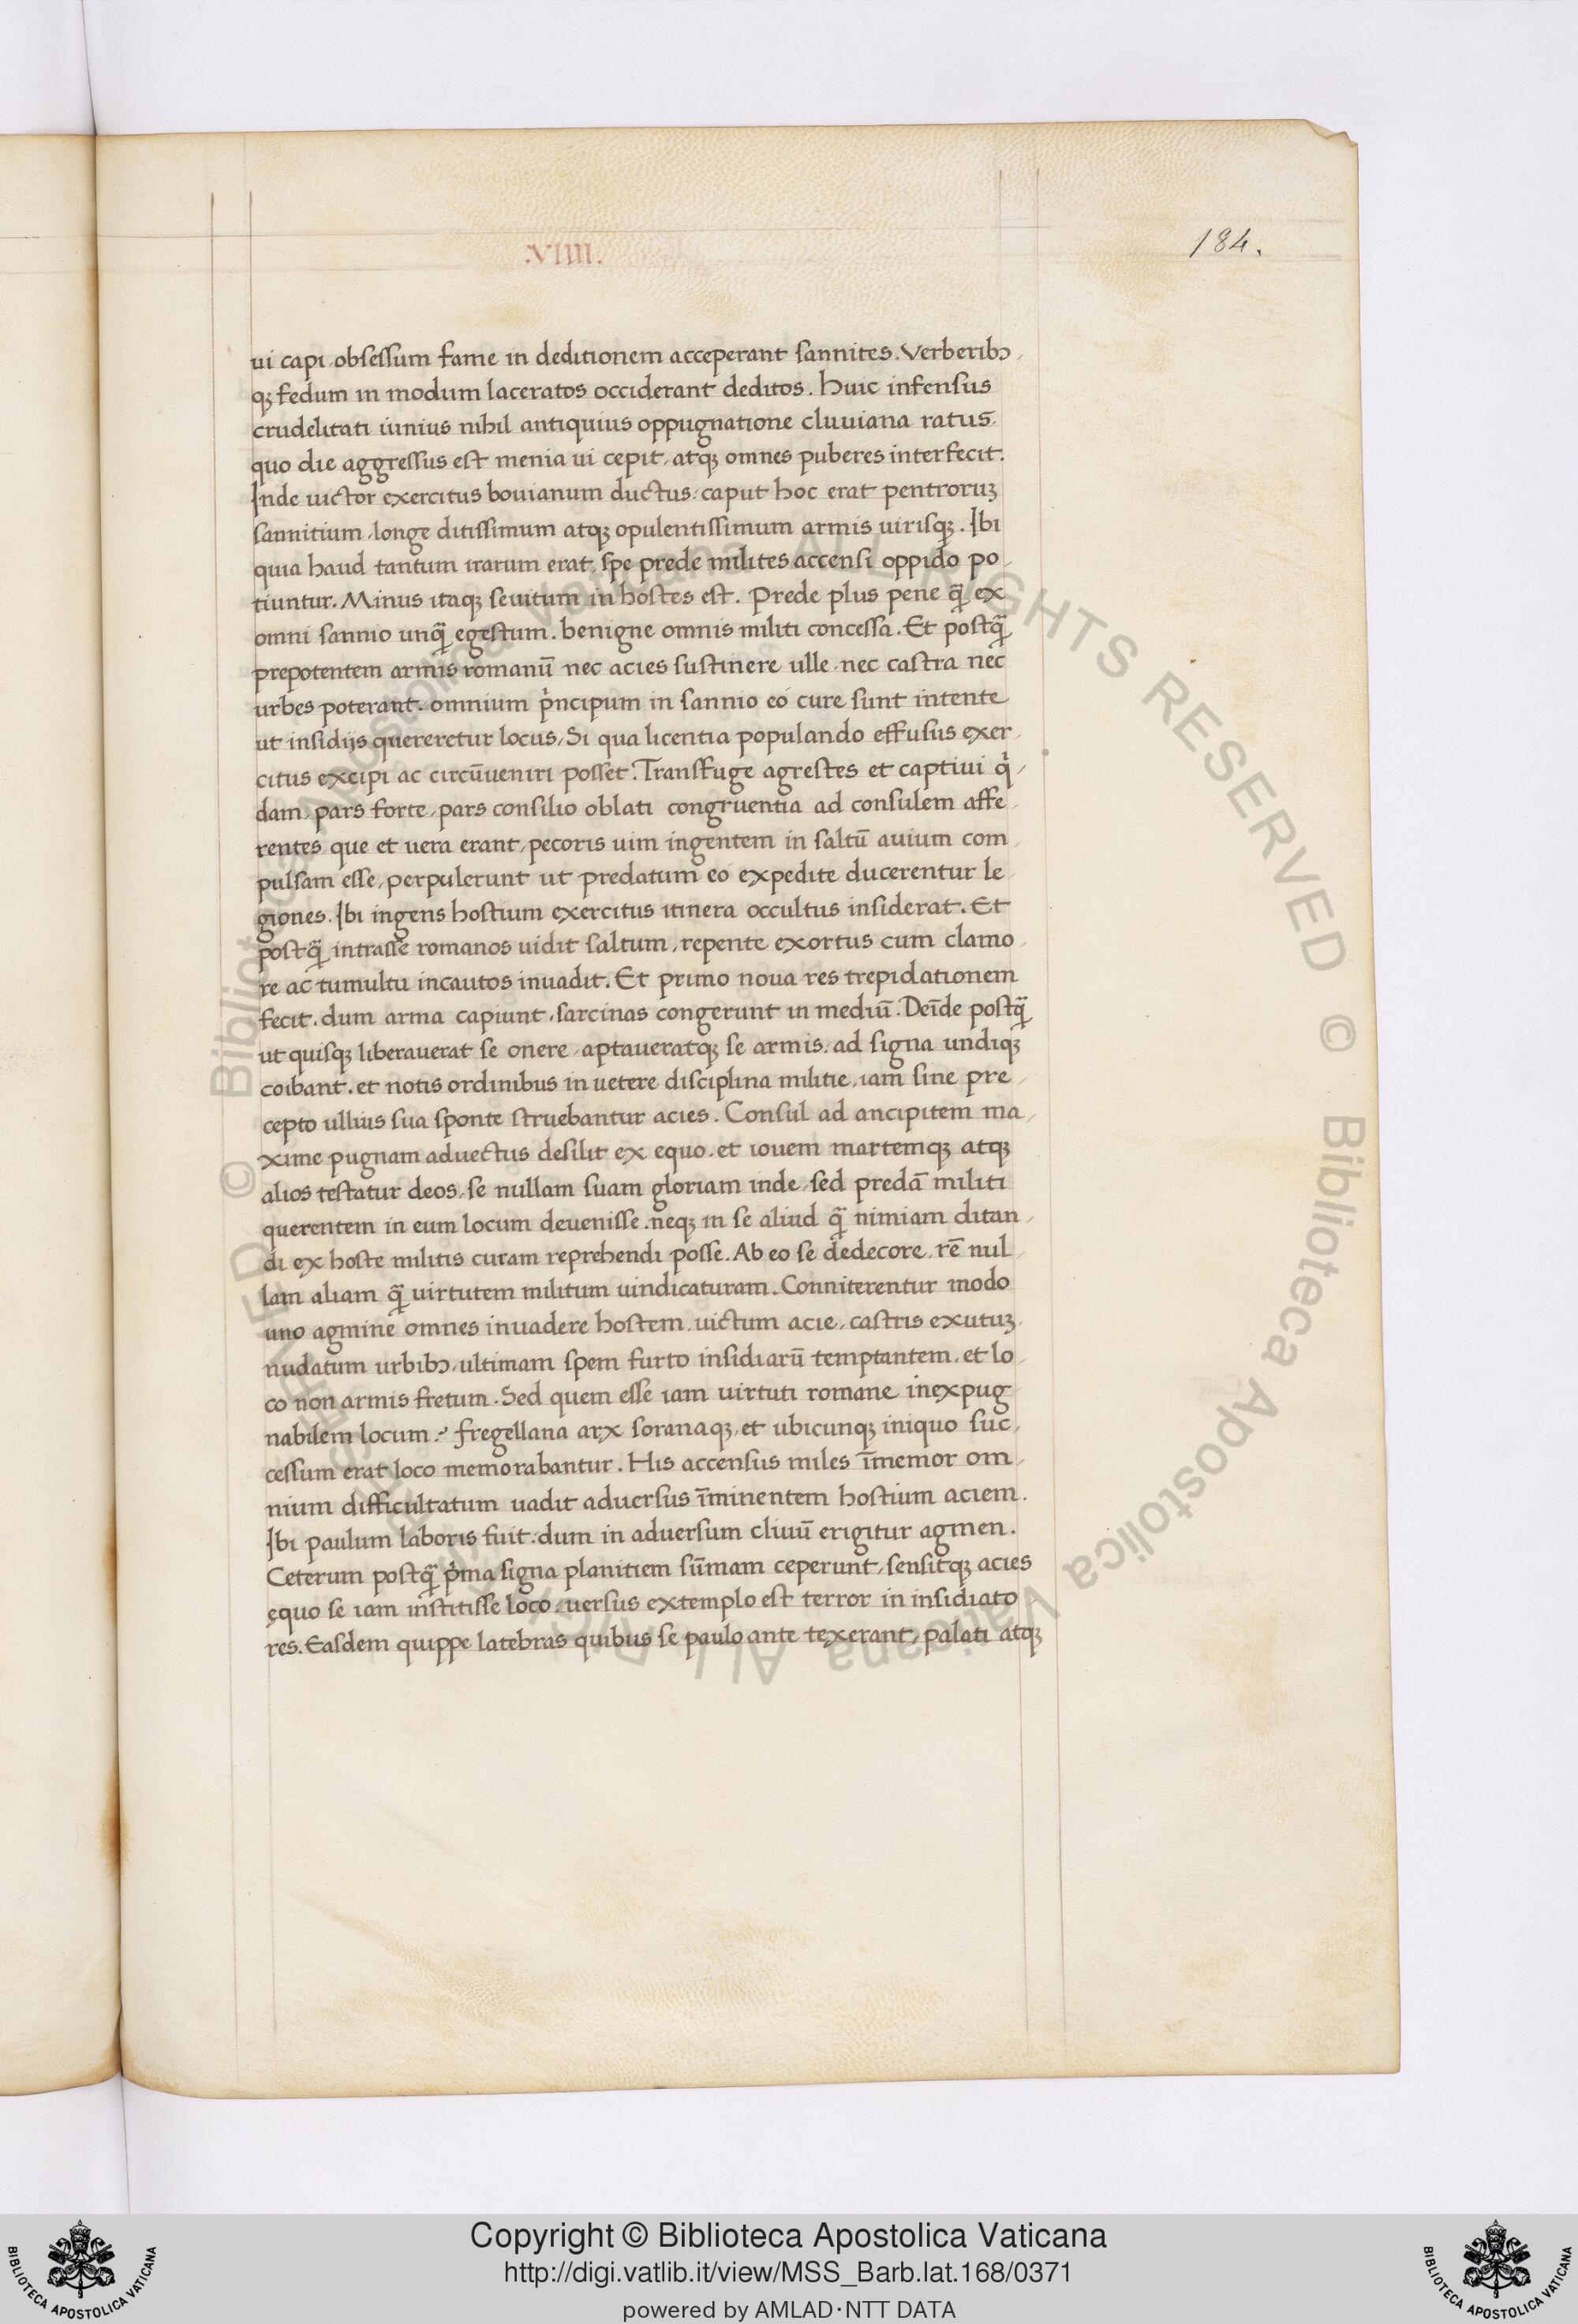 .VIIII.
184.
ui capi obsessum fame in deditionem acceperant sannites. Verberibꝫ
qꝫ fedum in modum laceratos occiderant deditos. Huic infensus
crudelitati iunius nihil antiquius oppugnatione cluuiana ratus.
quo die aggressus est menia ui cepit, atqꝫ omnes puberes interfecit.
Inde uictor exercitus bouianum ductus: caput hoc erat pentroruꝫ
sannitium, longe ditissimum atqꝫ opulentissimum armis uirisqꝫ. Ibi
quia haud tantum irarum erat, spe prede milites accensi oppido po-
tiuntur. Minus itaqꝫ seuitum in hostes est. Prede plus pene q̃ ex
omni sannio unq̃ egestum. benigne omnis militi concessa. Et postq̃
prepotentem armis romanū nec acies sustinere ulle, nec castra nec
urbes poterant. omnium pͥncipum in sannio eo cure sunt intente
ut insidijs quereretur locus, Si qua licentia populando effusus exer-
citus excipi ac circūueniri posset. Transfuge agrestes et captiui qͥ-
dam, pars forte, pars consilio oblati congruentia ad consulem affe-
rentes que et uera erant, pecoris uim ingentem in saltū auium com-
pulsam esse, perpulerunt ut predatum eo expedite ducerentur le-
giones. Ibi ingens hostium exercitus itinera occultus insiderat. Et
postq̃ intrasse romanos uidit saltum, repente exortus cum clamo-
re ac tumultu incautos inuadit. Et primo noua res trepidationem
fecit. dum arma capiunt, sarcinas congerunt in mediū. Deīde postq̃
ut quisqꝫ liberauerat se onere, aptaueratqꝫ se armis. ad signa undiqꝫ
coibant. et notis ordinibus in uetere disciplina militie, iam sine pre-
cepto ullius sua sponte struebantur acies. Consul ad ancipitem ma-
xime pugnam aduectus desilit ex equo. et iouem martemqꝫ atqꝫ
alios testatur deos, se nullam suam gloriam inde, sed predā militi
querentem in eum locum deuenisse. neqꝫ in se aliud q̃ nimiam ditan-
di ex hoste militis curam reprehendi posse. Ab eo se dedecore, rē nul-
lam aliam q̃ uirtutem militum uindicaturam. Conniterentur modo
uno agmine omnes inuadere hostem, uictum acie, castris exutuꝫ,
nudatum urbibꝫ, ultimam spem furto insidiarū temptantem. et lo-
co non armis fretum. Sed quem esse iam uirtuti romane inexpug
nabilem locum? fregellana arx soranaqꝫ, et ubicunqꝫ iniquo suc-
cessum erat loco memorabantur. His accensus miles īmemor om-
nium difficultatum uadit aduersus īminentem hostium aciem.
Ibi paulum laboris fuit: dum in aduersum cliuū erigitur agmen.
Ceterum postq̃ pͥma signa planitiem sūmam ceperunt, sensitqꝫ acies
ęquo se iam institisse loco, uersus extemplo est terror in insidiato
res. Easdem quippe latebras quibus se paulo ante texerant, palati atqꝫ
© Biblioteca Apostolica Vaticana ALL RIGHTS RESERVED © Biblioteca Apostolica Vaticana ALL RIGHTS RESERVED
Copyright © Biblioteca Apostolica Vaticana
http://digi.vatlib.it/view/MSS_Barb.lat.168/0371
powered by AMLAD·NTT DATA
BIBLIOTECA APOSTOLICA VATICANA
BIBLIOTECA APOSTOLICA VATICANA